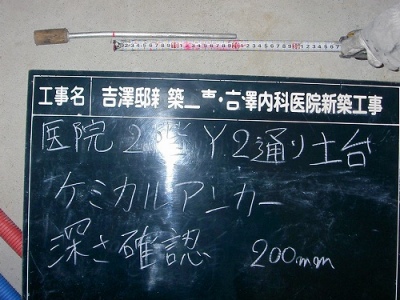 工事名 吉澤邸新築工事・吉澤内科医院新築工事
医院 2階 Y2通り土台
ケミカルアンカー
深さ確認 200mm